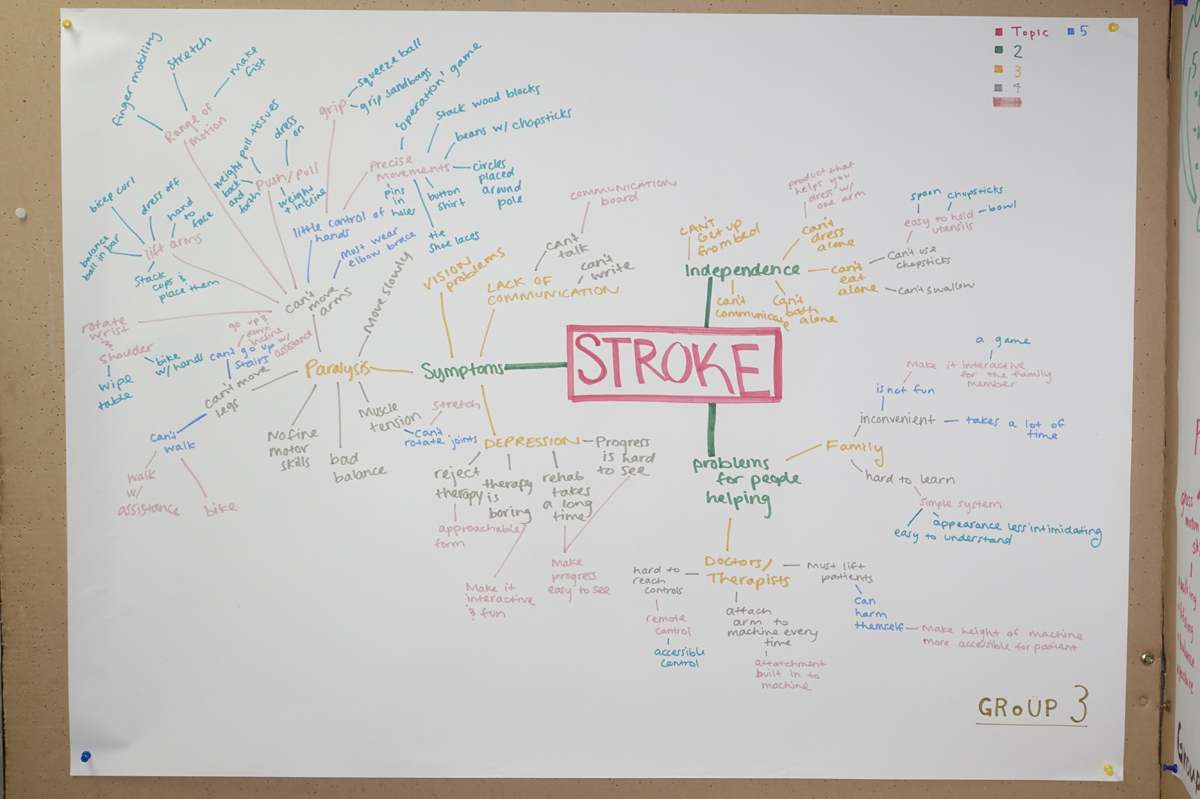 Topic
5
2
3
4
STROKE
Symptoms
VISION
problems
LACK OF
COMMUNICATION
can't
talk
can't
write
COMMUNICATION
board
Paralysis
Move slowly
can't
move
arms
little control of
hands
Must wear
elbow brace
Range of
Motion
finger mobility
stretch
make
fist
grip
squeeze ball
grip sandbags
Push/Pull
weight pull tissues
back
and
forth
dress
on
weight
+ incline
Precise
Movements
"operation" game
stack wood blocks
beans w/ chopsticks
circles
placed
around
pole
button
shirt
pins
in
holes
tie
shoe laces
lift arms
bicep curl
dress off
hand
to
face
balance
ball in bar
Stack
cups &
place them
rotate
wrist
&
shoulder
wipe
table
bike
w/ hands
can't move
legs
can't go up
stairs
go up &
down
incline
w/
assistance
can't
walk
walk
w/
assistance
bike
No fine
motor
skills
bad
balance
Muscle
tension
can't
rotate joints
stretch
DEPRESSION
reject
therapy
approachable
form
therapy
is
boring
Make it
interactive
& fun
rehab
takes
a long
time
Progress
is hard
to see
Make
progress
easy to see
Independence
CAN'T
Get up
from bed
can't
dress
alone
product that
helps you
dress w/
one arm
can't
eat
alone
can't use
chopsticks
easy to hold
utensils
spoon
chopsticks
bowl
can't swallow
can't
communicate
can't
bath
alone
problems
for people
helping
Family
inconvenient
is not fun
Make it interactive
for the family
member
a game
takes a lot of
time
hard to learn
simple system
appearance less intimidating
easy to understand
Doctors/
Therapists
hard to
reach
controls
remote
control
accessible
control
attach
arm to
machine every
time
attatchment
built in to
machine
Must lift
patients
can
harm
themself
Make height of machine
more accessible for patient
GROUP 3